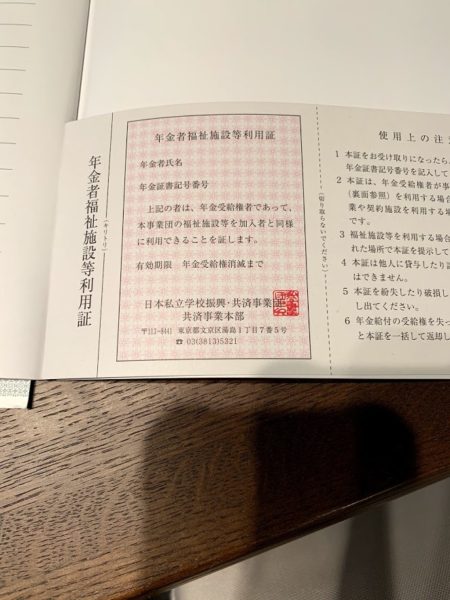 年金者福祉施設等利用証
(キリトリ)
年金者福祉施設等利用証
年金者氏名
年金証書記号番号
上記の者は、年金受給権者であって、
本事業団の福祉施設等を加入者と同様
に利用できることを証します。
有効期限 年金受給権消滅まで
日本私立学校振興・共済事業団
共済事業本部
〒113-8441 東京都文京区湯島1丁目7番5号
☎ 03(3813)5321
(切り取らないでください)
使用上の注
1 本証をお受け取りになったら、
年金証書記号番号を記入して
2 本証は、年金受給権者が事
(裏面参照)を利用する場合
業や契約施設を利用する場
です。
3 福祉施設等を利用する場合
れた場所で本証を提示して
4 本証は他人に貸与したり譲
はできません。
5 本証を紛失したり破損し
し出てください。
6 年金給付の受給権を失っ
と本証を一括して返却し